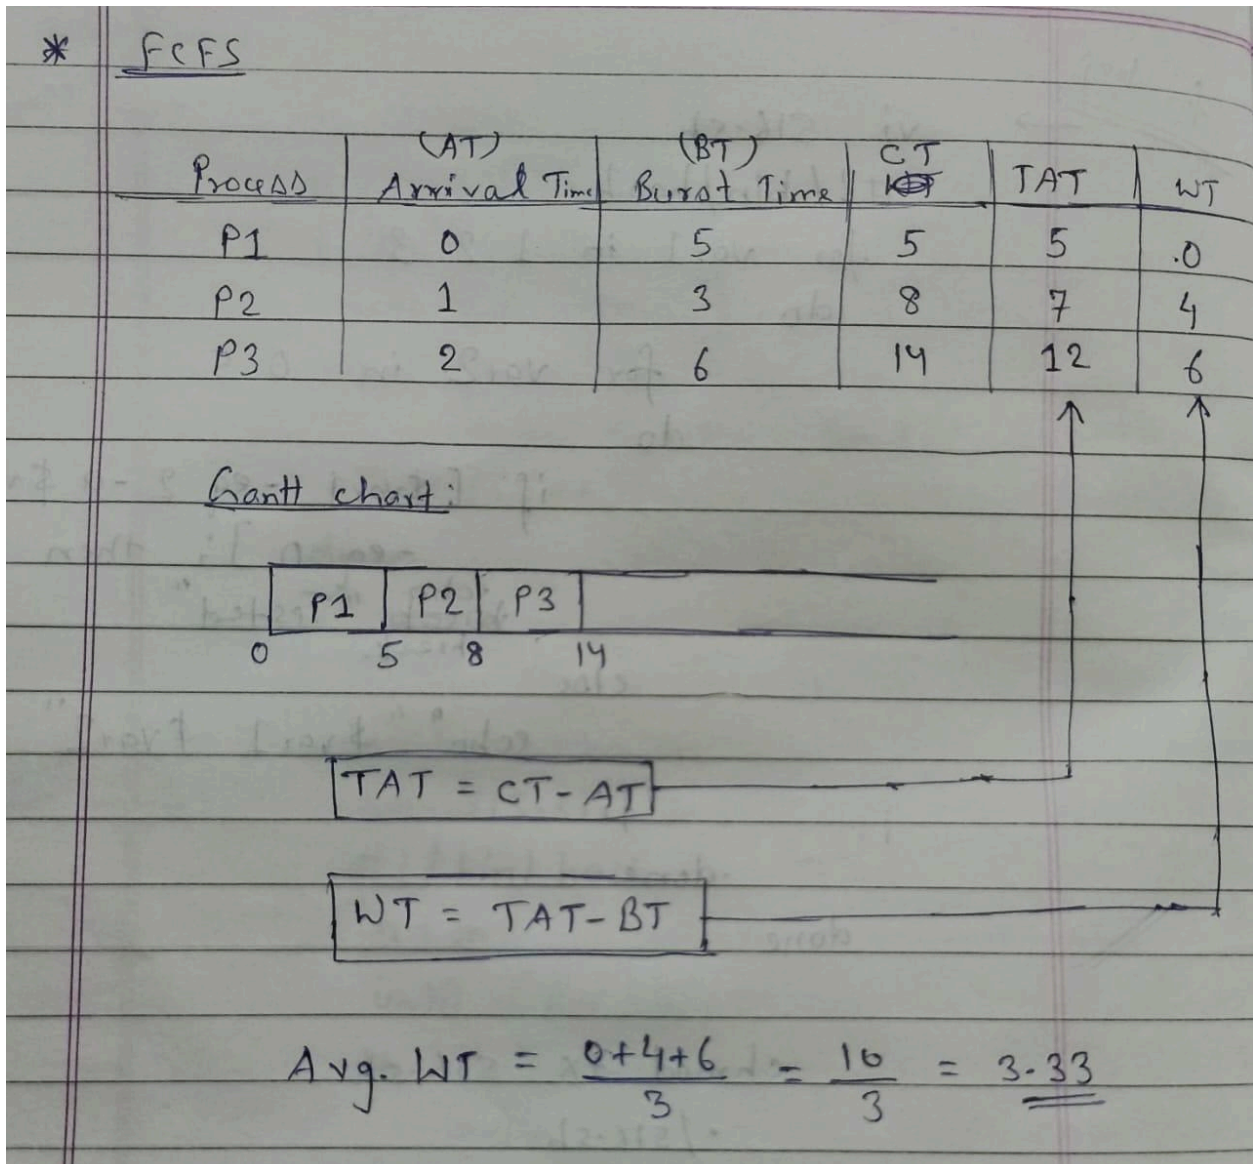 * FCFS
Process (AT) Arrival Time (BT) Burst Time CT TAT WT
P1 0 5 5 5 .0
P2 1 3 8 7 4
P3 2 6 14 12 6
Gantt chart:
P1 P2 P3
0 5 8 14
TAT = CT - AT
WT = TAT - BT
Avg. WT = 0+4+6/3 = 10/3 = 3.33